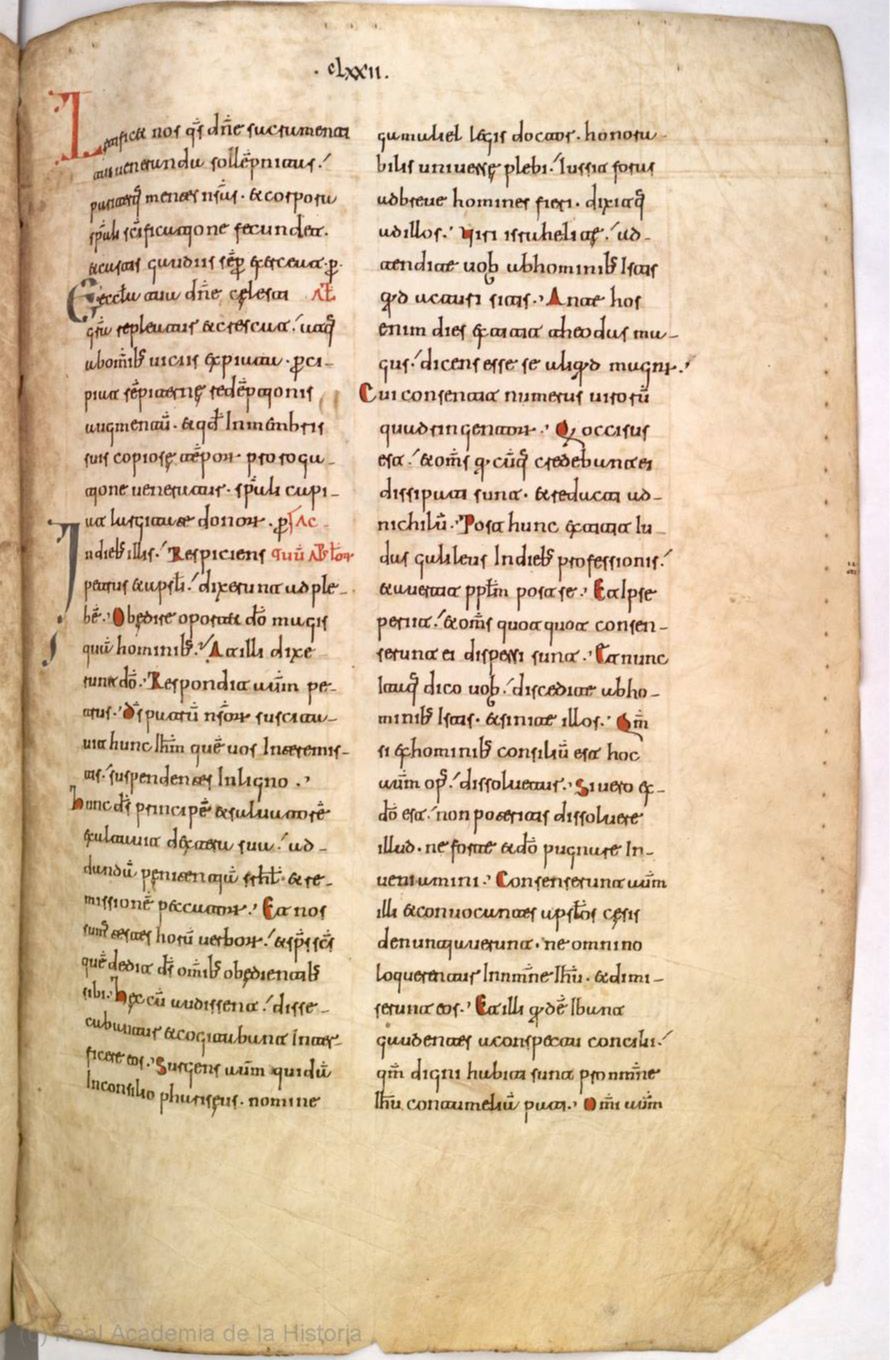 · cLxxii.
Letificet nos q̄s dn̄e sacramenta
ueneranda sollēpnitas ./
purasq̄ mentes nr̄as · & corpora
sp̄uli scīficatione fecundet.
et castis gaudiis sēp exerceat · p̄.
Eccl̄a tua dn̄e celesti Al̄
gr̄a repleatur & crescat ./ atq̄
ab omīb uiciis expiata · p̄ci-
piat sēpiterne redēptionis
augmentū · & qd̄ In mēnbris
suis copiose tēpor prerogа-
tione ueneratur · sp̄uli capi-
at largitate donor · p̄
In dieb illis ./ Respiciens
petrus & apsl̄i ./ dixerunt ad ple-
bē ./ Obedire oportet dō magis
quā hominib ./ At illi dixe-
runt dō ./ Respondit aūm pe-
trus ./ Ds̄ patrū nr̄or suscita-
uit hunc Ihm̄ quē uos Interemis-
tis ./ suspendentes In ligno ./
hunc ds̄ principē & saluatorē
exaltauit dextera sua ./ ad
dandā penitentiā srhl̄ · & re-
missionē peccator ./ Et nos
sum̄ testes horū uerbor ./ & sp̄s scs̄
quē dedit ds̄ omīb obedientib
sibi ./ hec cū audissent ./ disse-
cabantur & cogitabant Inter-
ficere eos ./ Surgens aūm quidā
In consilio phariseus · nomine
gamaliel legis doctor · honora-
bilis uniuerse plebi ./ Iussit foras
ad breue homines fieri · dixitq̄
ad illos ./ Viri israhelite ./ ad-
tendite uob ab hominib Istis
qd acturi sitis ./ Ante hos
enim dies extitit theodas ma-
gus ./ dicens esse se aliqd magni ./
Cui consentit numerus uirorū
quadringentor ./ Q occisus
est ./ & omīs q cūq̄ credebant ei
dissipati sunt · & redacti ad-
nichilū ./ Post hunc extitit Iu-
das galileus In dieb professionis ./
& auertit pplm̄ post se ./ Et Ipse
periit ./ & omīs quotquot consen-
serunt ei dispersi sunt ./ Et nunc
Itaq̄ dico uob ./ discedite ab ho-
minib Istis · & sinite illos ./ Qm̄
si ex hominib consiliū est hoc
aūm op ./ dissoluetur ./ Si uero ex-
dō est ./ non poteritis dissoluere
illud · ne forte & dō pugnare In-
ueniamini ./ Consenserunt aūm
illi & conuocantes apsl̄os cesis
denuntiauerunt · ne omnino
loquerentur In nm̄ne Ihū · & dimi-
serunt eos ./ Et illi qdē Ibant
gaudentes a conspectu concilii ./
qm̄ digni habiti sunt pro nm̄ne
Ihū contumeliā pati ./ Om̄i aūm
(c) Real Academia de la Historia